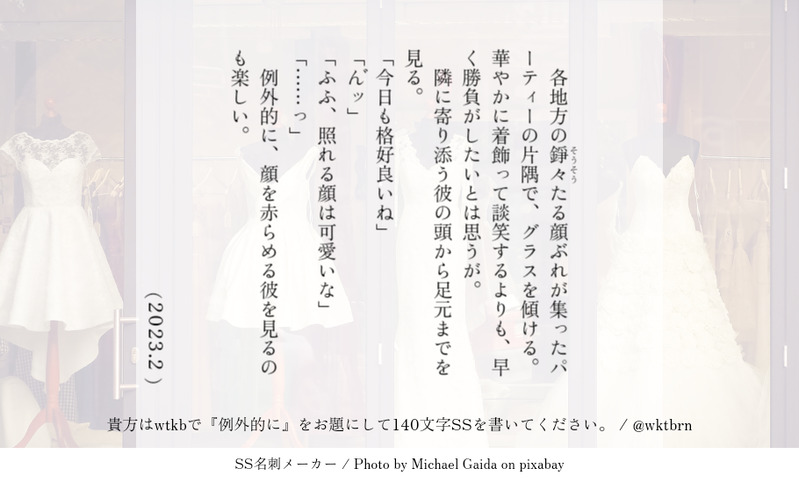 各地方の錚々たる顔ぶれが集ったパ
ーティーの片隅で、グラスを傾ける。
華やかに着飾って談笑するよりも、早
く勝負がしたいとは思うが。
隣に寄り添う彼の頭から足元までを
見る。
「今日も格好良いね」
「ん゛ッ」
「ふふ、照れる顔は可愛いな」
「……っ」
例外的に、顔を赤らめる彼を見るの
も楽しい。
そうそう
(2023.2 )
貴方はwtkbで『例外的に』をお題にして140文字SSを書いてください。 / @wktbrn
SS名刺メーカー / Photo by Michael Gaida on pixabay